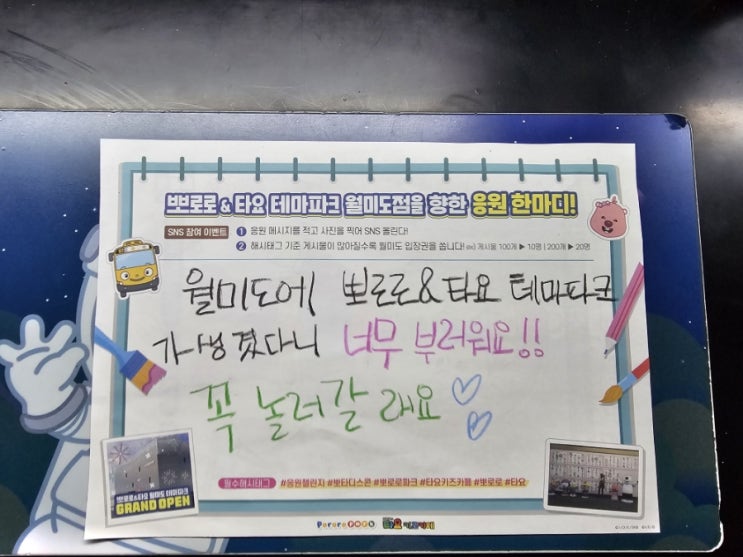 뽀로로 & 타요 테마파크 월미도점을 향한 응원 한마디!
SNS 참여 이벤트 1 응원 메시지를 적고 사진을 찍어 SNS 올린다!
2 해시태그 기준 게시물이 많아질수록 월미도 입장권을 쏩니다! ex) 게시물 100개 ▶ 10명 | 200개 ▶ 20명
월미도에 뽀로로&타요 테마파크
가 생겼다니 너무 부러워요!!
꼭 놀러갈래요
뽀로로&타요 월미도 테마파크
GRAND OPEN
필수해시태그 #응원챌린지 #뽀타디스콘 #뽀로로파크 #타요키즈카페 #뽀로로 #타요
Pororo PARK 타요